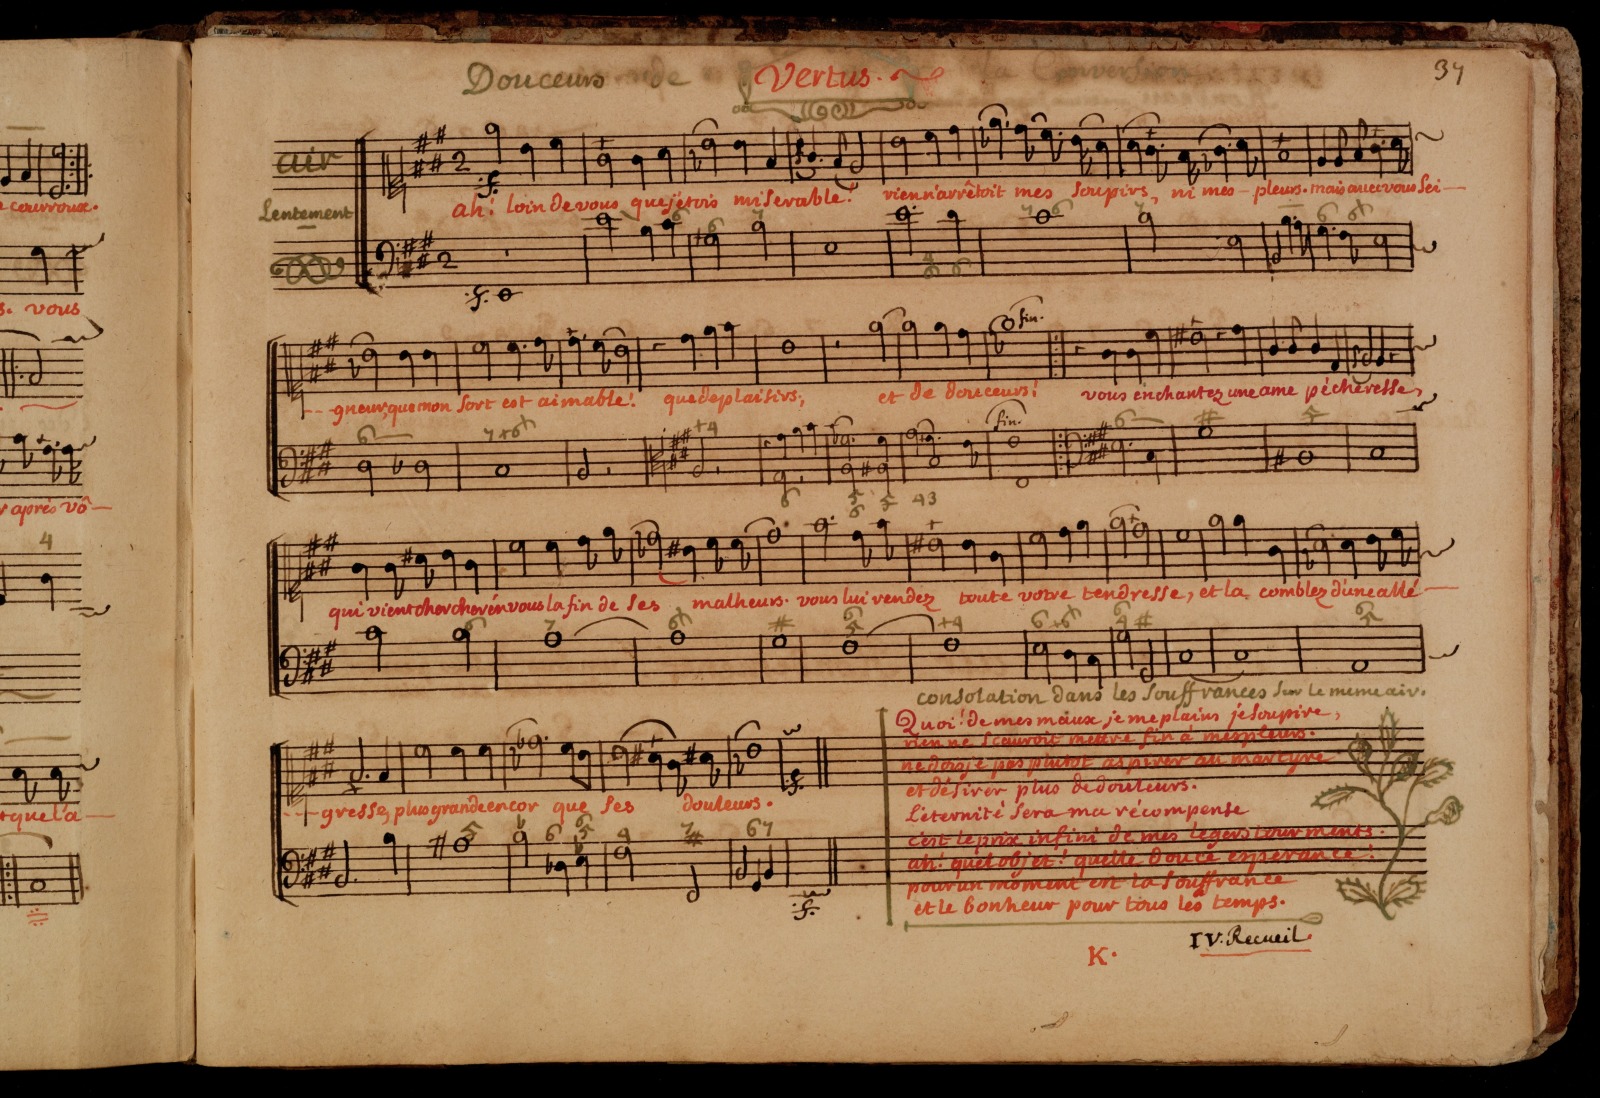 Douceurs de Vertus.
37
air
Lentement
ah! loin de vous que j'etois miserable! rien n'arrêtoit mes soupirs, ni mes - pleurs. mais avec vous sei-
fin.
- - gneur, que mon sort est aimable! que de plaisirs, et de douceurs! vous enchantez une ame pécheresse,
fin.
qui vient chercher en vous la fin de ses malheurs. vous lui rendez toute votre tendresse, et la comblez d'une allé-
consolation dans les souffrances sur le meme air.
- - gresse, plus grande encor que ses douleurs.
Quoi! de mes maux je me plains je soupire,
rien ne scauroit mettre fin à mes pleurs.
ne dois je pas plutot aspirer au martyre
et désirer plus de douleurs.
L'eternité sera ma récompense
c'est le prix infini de mes légers tourments.
ah! quel objet! quelle douce esperance!
pour un moment est la souffrance
et le bonheur pour tous les temps.
IV. Recueil
K.
e courroux.
s. vous
r aprés vô-
t que l'a-